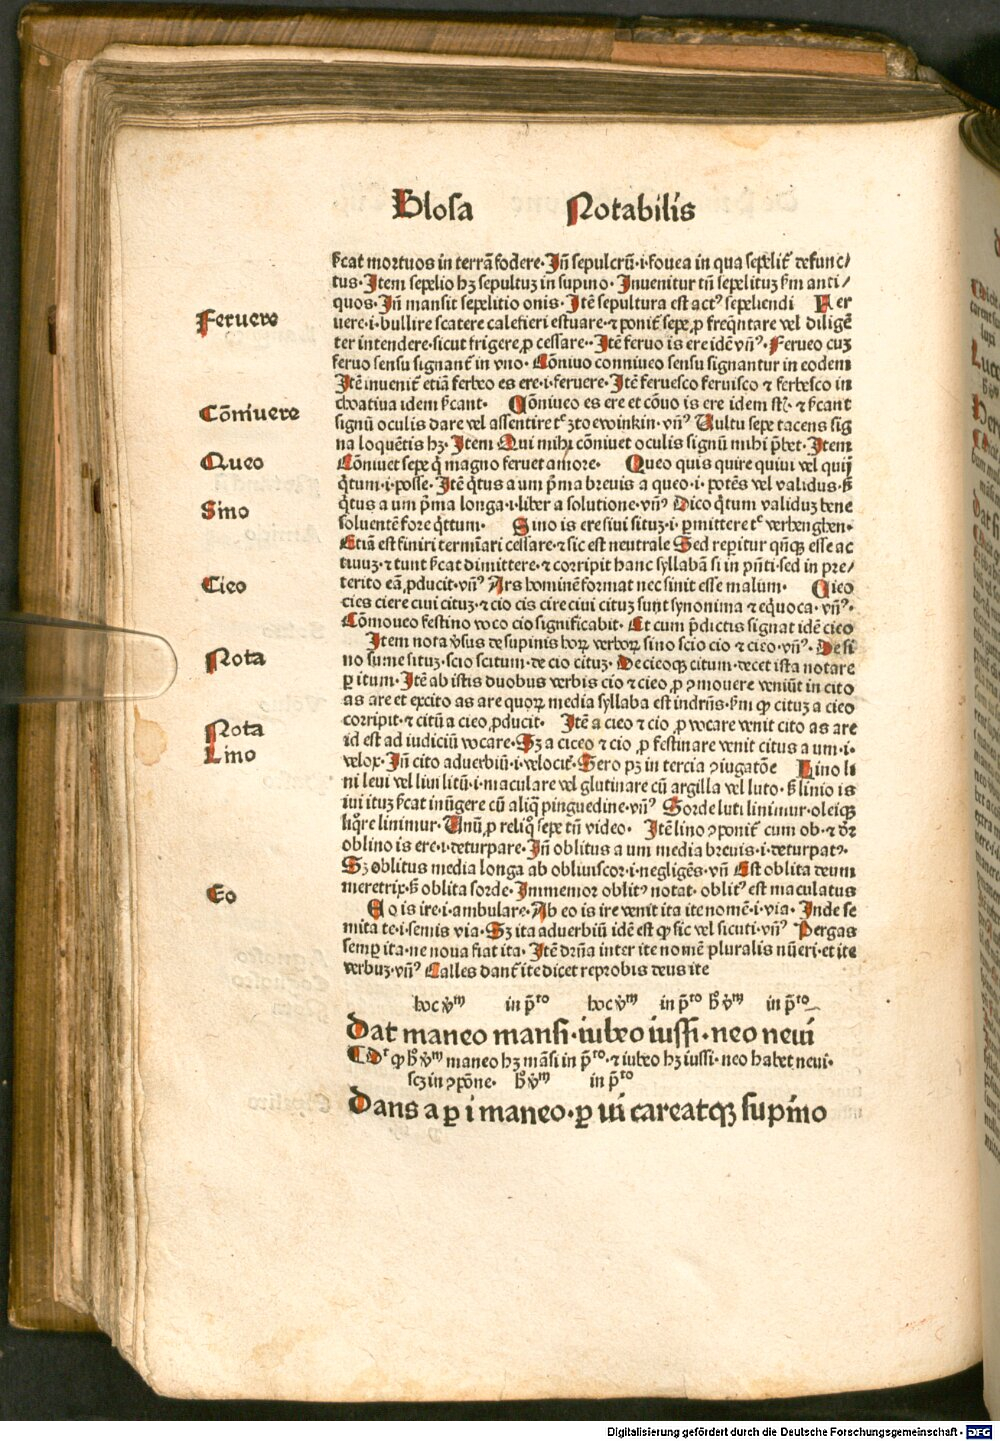 Glosa Notabilis
ẜcat mortuos in terrã fodere·Iñ sepulcrũ·i·fouea in qua sepelit᷑ defunc/
tus·Item sepelio hꝫ sepultuꝫ in supino·Inuenitur tñ sepelituꝫ ẜm anti/
quos·Iñ mansit sepelitio onis·Itẽ sepultura est actꝰ sepeliendi Fer
Feruere
uere·i·bullire scatere calefieri estuare·⁊ ponit᷑ sepe ꝓ freq̃ntare vel diligẽ
ter intendere·sicut frigere ꝓ cessare·Itẽ feruo is ere idẽ vñꝰ·Ferueo cuꝫ
feruo sensu signant᷑ in vno·Cõniuo conniueo sensu signantur in eodem
Itẽ inuenit᷑ etiã ferbeo es ere·i·feruere·Itẽ feruesco feruisco ⁊ ferbesco in
Cõniuere
choatiua idem ẜcant· Cõniueo es ere et cõuo is ere idem st᷑· ⁊ ẜcant
signũ oculis dare vel assentire tᶜ zto ewinkin·vñꝰ Vultu sepe tacens sig
na loquẽtis hꝫ·Item Qui mihi cõniuet oculis signũ mihi p̃bet·Item
Queo
Cõniuet sepe q̇ magno feruet amore· Queo quis quire quiui vel quij
q̇tum·i·posse·Itẽ q̇tus a um p̃ma breuis a queo·i·potẽs vel validus·ẜ
q̇tus a um p̃ma longa·i·liber a solutione·vñꝰ Dico q̇tum validuꝫ bene
Sino
soluentẽ fore q̇ttum· Sino is ere siui situꝫ·i·ꝑmittere tᶜ verhenghen·
Etiã est finiri termĩari cessare·⁊ sic est neutrale Sed reꝑitur qñqꝫ esse ac
tiuuꝫ·⁊ tunt ẜcat dimittere·⁊ corripit hanc syllabã si in pñti·sed in pre/
Cieo
terito eã ꝓducit·vñꝰ Ars hominẽ format nec sinit esse malum· Cieo
cies ciere ciui cituꝫ·⁊ cio cis cire ciui cituꝫ sunt synonima ⁊ eq̇uoca·vñꝰ·
Cõmoueo festino voco cio significabit·Et cum p̃dictis signat idẽ cieo
Nota
Item nota ṽsus de supinis hoꝝ verboꝝ sino scio cio ⁊ cieo·vñꝰ·De si
no sume situꝫ·scio scitum·de cio cituꝫ·De cieoqꝫ citum·decet ista notare
ꝑ itum·Itẽ ab istis duobus verbis cio ⁊ cieo ꝓ ꝯmouere veniũt in cito
as are et excito as are quoꝝ media syllaba est indrñs·ẜm ꝙ cituꝫ a cieo
Nota
corripit·⁊ citũ a cieo ꝓducit· Itẽ a cieo ⁊ cio ꝓ vocare venit cito as are
Lino
id est ad iudiciũ vocare·Sꝫ a cieo ⁊ cio ꝓ festinare venit citus a um·i·
velox·Iñ cito aduerbiũ·i·velocit᷑·Sero pꝫ in tercia ꝯiugatõe Lino li
ni leui vel liui litũ·i·maculare vel glutinare cũ argilla vel luto·ẜ linio is
iui ituꝫ ẜcat inũgere cũ aliq̃ pinguedine·vñꝰ Sorde luti linimur·oleiqꝫ
liq̃re linimur·Vnũ ꝓ reliq̊ sepe tñ video· Itẽ lino ꝯponit᷑ cum ob·⁊ d̃r
oblino is ere·i·deturpare·Iñ oblitus a um media breuis·i·deturpatꝰ·
Sꝫ oblitus media longa ab obliuiscor·i·negligẽs·vñ Est oblita deum
Eo
meretrix·ẜ oblita sorde·Immemor oblitꝰ notat·oblitꝰ est maculatus
Eo is ire·i·ambulare·Ab eo is ire venit ita ite nomẽ·i·via·Inde se
mita te·i·semis via·Sꝫ ita aduerbiũ idẽ est ꝙ sic vel sicuti·vñꝰ Pergas
semꝑ ita·ne noua fiat ita·Itẽ drña inter ite nomẽ pluralis nũeri·et ite
verbuꝫ·vñꝰ Calles dant᷑ ite dicet reprobis deus ite
hoc v̊ᵐ in p̃ʳᵒ hoc v̊ᵐ in p̃ʳᵒ h̊ v̊ᵐ in p̃ʳᵒ
Dat maneo mansi·iubeo iussi·neo neui
ꝙ h̊ v̊ᵐ maneo hꝫ mãsi in p̃ʳᵒ·⁊ iubeo hꝫ iussi·neo habet neui·
scꝫ in ꝯpõne· h̊ v̊ᵐ in p̃ʳᵒ
Dans a ꝑ i maneo·ꝑ ui careatqꝫ supino
Digitalisierung gefördert durch die Deutsche Forschungsgemeinschaft - DFG